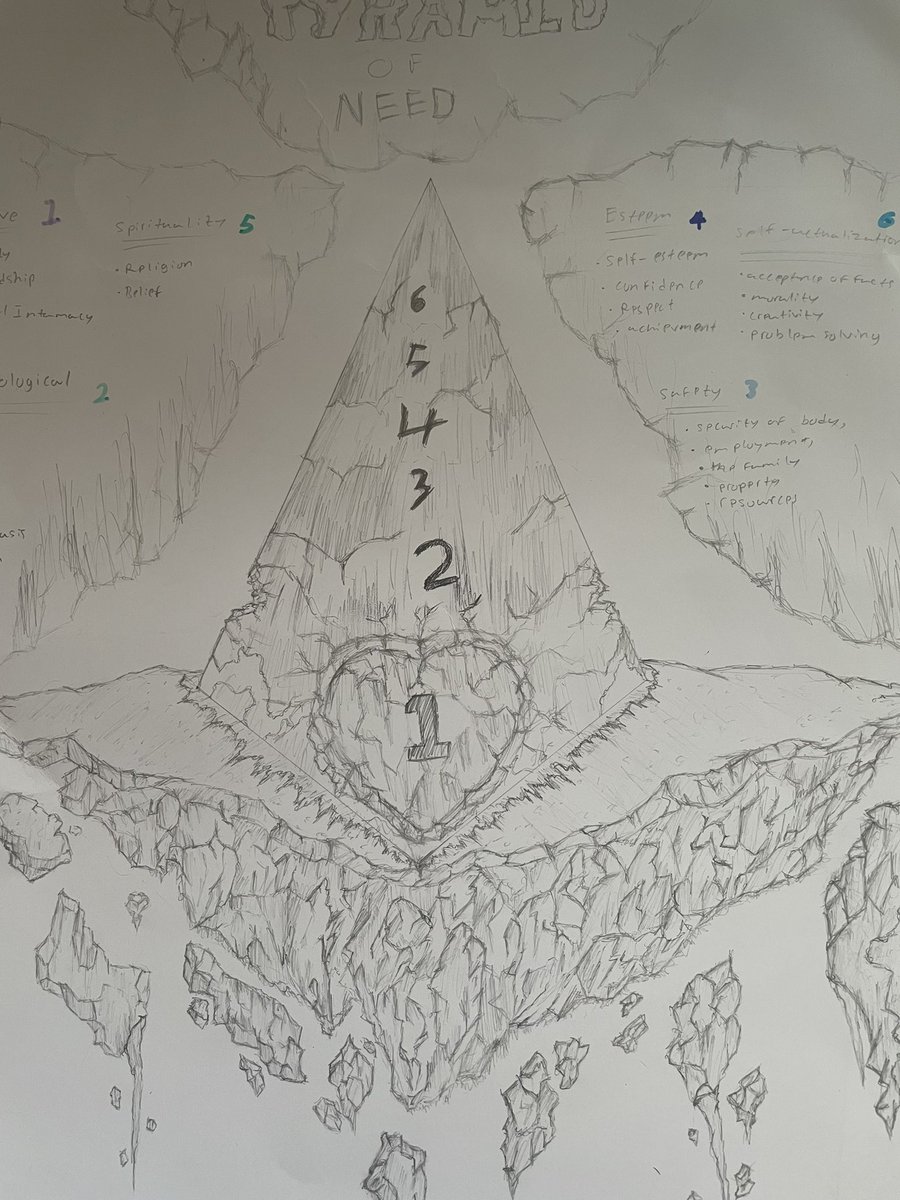 PYRAMID
OF
NEED
ve 1
ly
dship
l Intamacy
ological 2
asis
Spirituality 5
• Religion
• Belief
6
5
4
3
2
1
Esteem 4
• Self-esteem
• confidence
• Respect
• achievment
Self-actualization 6
• acceptance of facts
• morality
• creativity
• problem solving
Safety 3
• security of body,
• employment,
• the family
• property
• resources